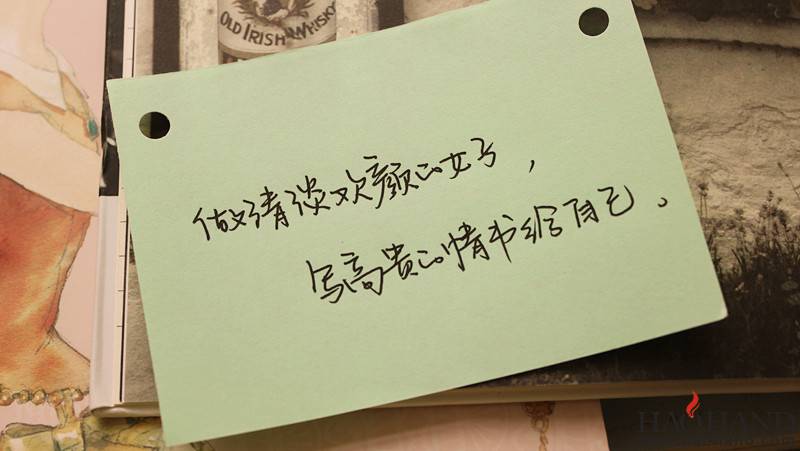 OLD IRISH WHISK
做清淡欢颜的女子，
写高贵的情书给自己。
HAOHAND